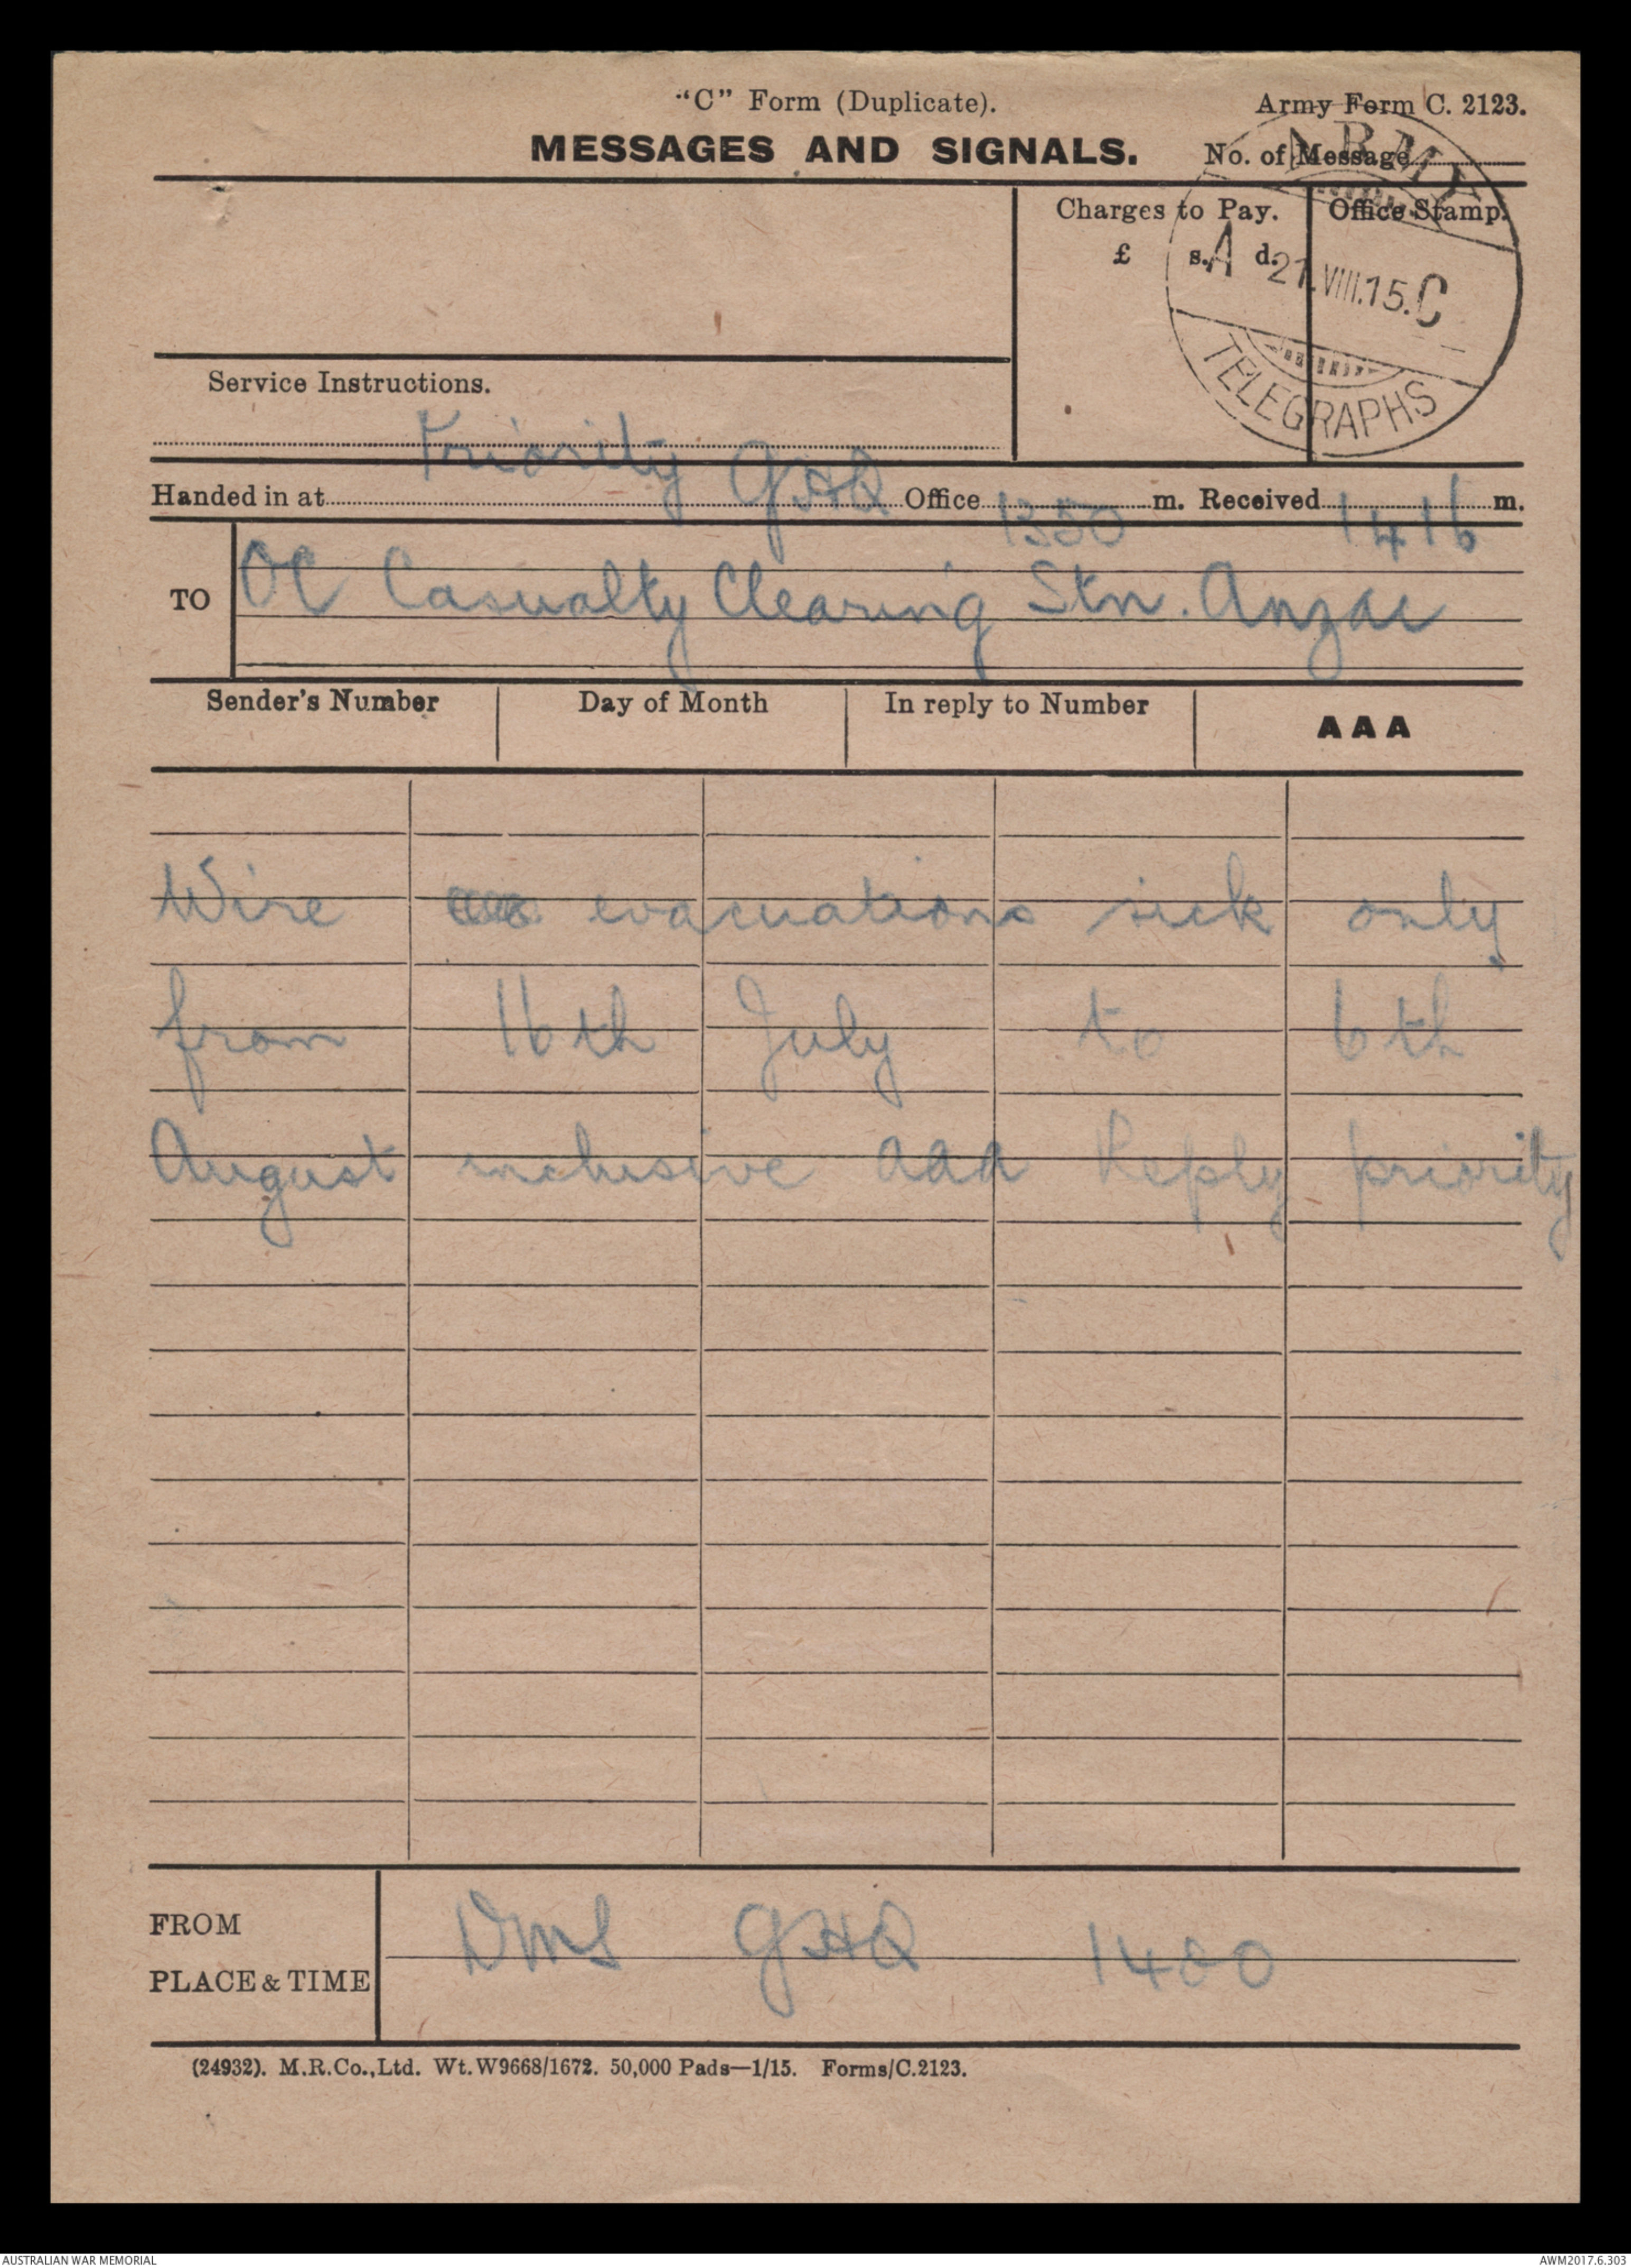 "C" Form (Duplicate).
Army Form C. 2123.
MESSAGES AND SIGNALS.
No. of Message
Charges to Pay.
£ s. d.
Office Stamp.
ARMY
A 21.VIII.15.C
TELEGRAPHS
Service Instructions.
Priority GHQ
Handed in at Office 1350 m. Received 1416 m.
TO OC Casualty Clearing Stn. Anzac
Sender's Number Day of Month In reply to Number AAA
Wire evacuations sick only
from 16th July to 6th
August inclusive aaa Reply priority
FROM DMS GHQ 1400
PLACE & TIME
(24932). M.R.Co.,Ltd. Wt.W9668/1672. 50,000 Pads—1/15. Forms/C.2123.
AUSTRALIAN WAR MEMORIAL
AWM2017.6.303